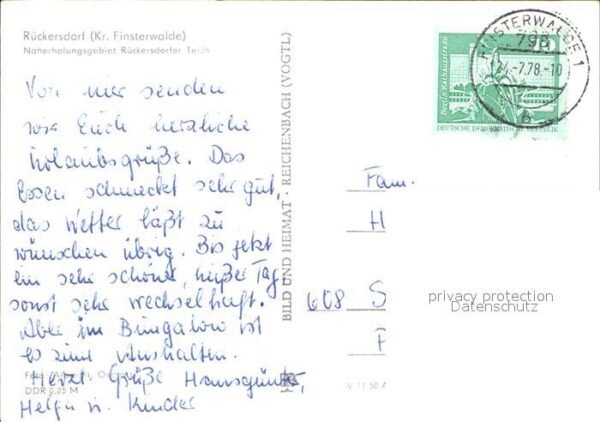 Rückersdorf (Kr. Finsterwalde)
Naherholungsgebiet Rückersdorfer Teich
Von hier senden
wir Euch herzliche
Urlaubsgrüße. Das
Essen schmeckt sehr gut,
das Wetter läßt zu
wünschen übrig. Bis jetzt
ein sehr schöner, heißer Tag
sonst sehr wechselhaft.
Aber im Bungalow ist
es zum Aushalten.
Herzl. Grüße Hansgünter,
Helga u. Kinder
DDR 0,25 M
BILD UND HEIMAT · REICHENBACH (VOGTL)
FINSTERWALDE 1
798
-7.78.-10
Berlin, Rathausstraße
10
DEUTSCHE DEMOKRATISCHE REPUBLIK
Fam.
H
608 S
F
privacy protection
Datenschutz